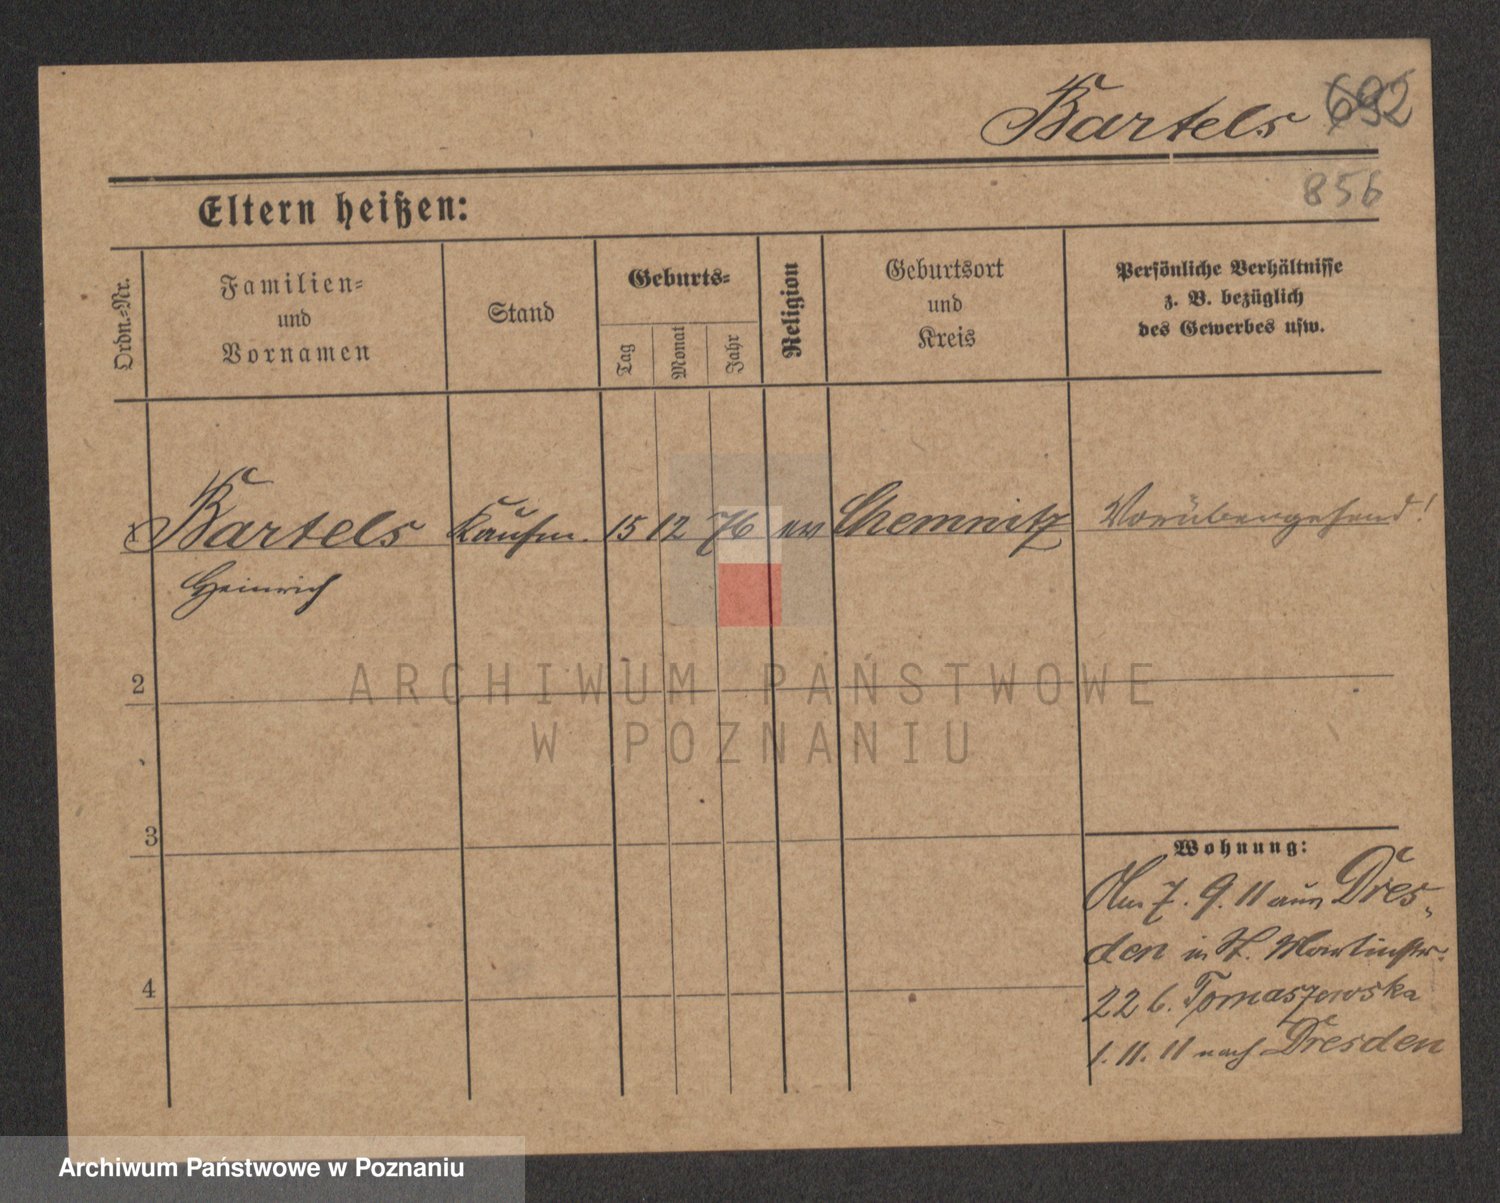 Bartels 692
856
Eltern heißen:
Ordn.=Nr.
Familien=
und
Vornamen
Stand
Geburts=
Tag
Monat
Jahr
Religion
Geburtsort
und
Kreis
Persönliche Verhältnisse
z. B. bezüglich
des Gewerbes usw.
1 Bartels Kaufm. 15 12 76 ev Chemnitz Vorübergehend!
Heinrich
2
3
4
Wohnung:
Am 7. 9. 11 aus Dres-
den in St. Martinstr.
22 b. Tomaszewska
1. 11. 11 nach Dresden
ARCHIWUM PAŃSTWOWE
W POZNANIU
Archiwum Państwowe w Poznaniu